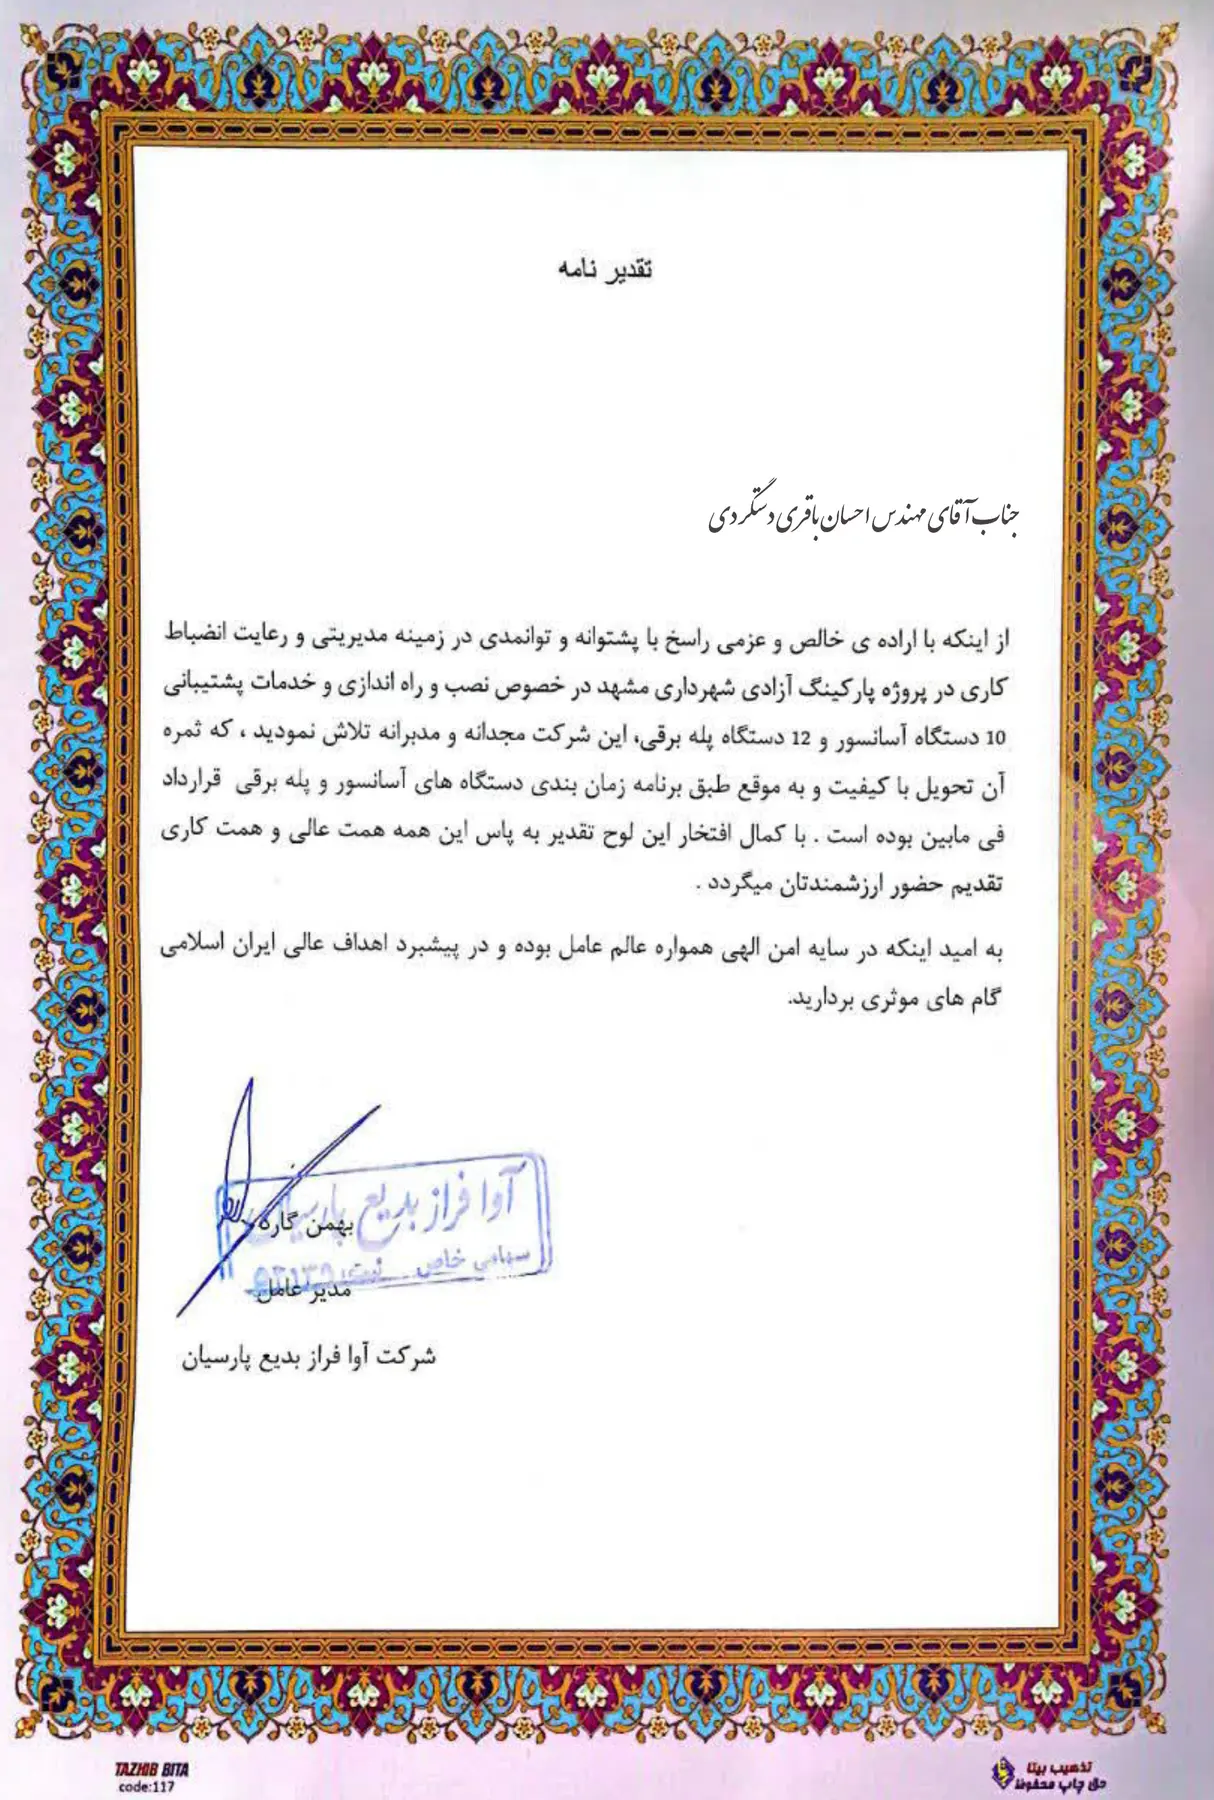 تقدیر نامه
جناب آقای مهندس احسان باقری دستگردی
از اینکه با اراده ی خالص و عزمی راسخ با پشتوانه و توانمدی در زمینه مدیریتی و رعایت انضباط
کاری در پروژه پارکینگ آزادی شهرداری مشهد در خصوص نصب و راه اندازی و خدمات پشتیبانی
10 دستگاه آسانسور و 12 دستگاه پله برقی، این شرکت مجدانه و مدبرانه تلاش نمودید ، که ثمره
آن تحویل با کیفیت و به موقع طبق برنامه زمان بندی دستگاه های آسانسور و پله برقی قرارداد
فی مابین بوده است . با کمال افتخار این لوح تقدیر به پاس این همه همت عالی و همت کاری
تقدیم حضور ارزشمندتان میگردد .
به امید اینکه در سایه امن الهی همواره عالم عامل بوده و در پیشبرد اهداف عالی ایران اسلامی
گام های موثری بردارید.
آوا فراز بدیع پارسیان
سهامی خاص ثبت:
بهمن گاره
مدیر عامل
شرکت آوا فراز بدیع پارسیان
TAZHIB BITA
code:117
تذهیب بیتا
حق چاپ محفوظ